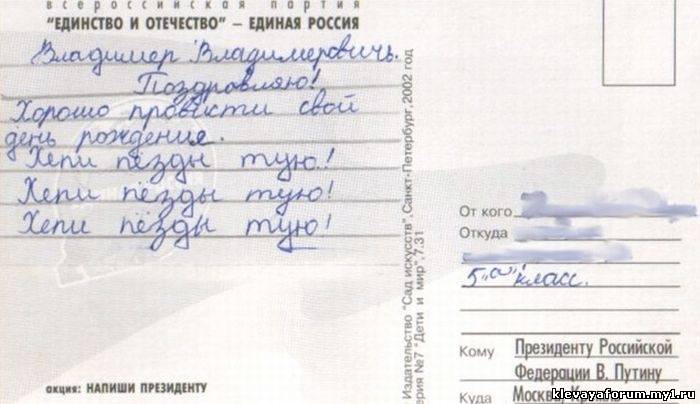 всероссийская партия
"ЕДИНСТВО И ОТЕЧЕСТВО" – ЕДИНАЯ РОССИЯ
Владимер Владимеровичь.
Поздровляю!
Хорошо провисти свой
день рождения.
Хепи пёзды тую!
Хепи пёзды тую!
Хепи пёзды тую!
акция: НАПИШИ ПРЕЗИДЕНТУ
Издательство "Сад искусств", Санкт-Петербург, 2002 год
ерия №7 "Дети и мир", 7.31
От кого
Откуда
5 "а" класс.
Кому Президенту Российской
Федерации В. Путину
Куда Москва, Кремль
klevayaforum.my1.ru